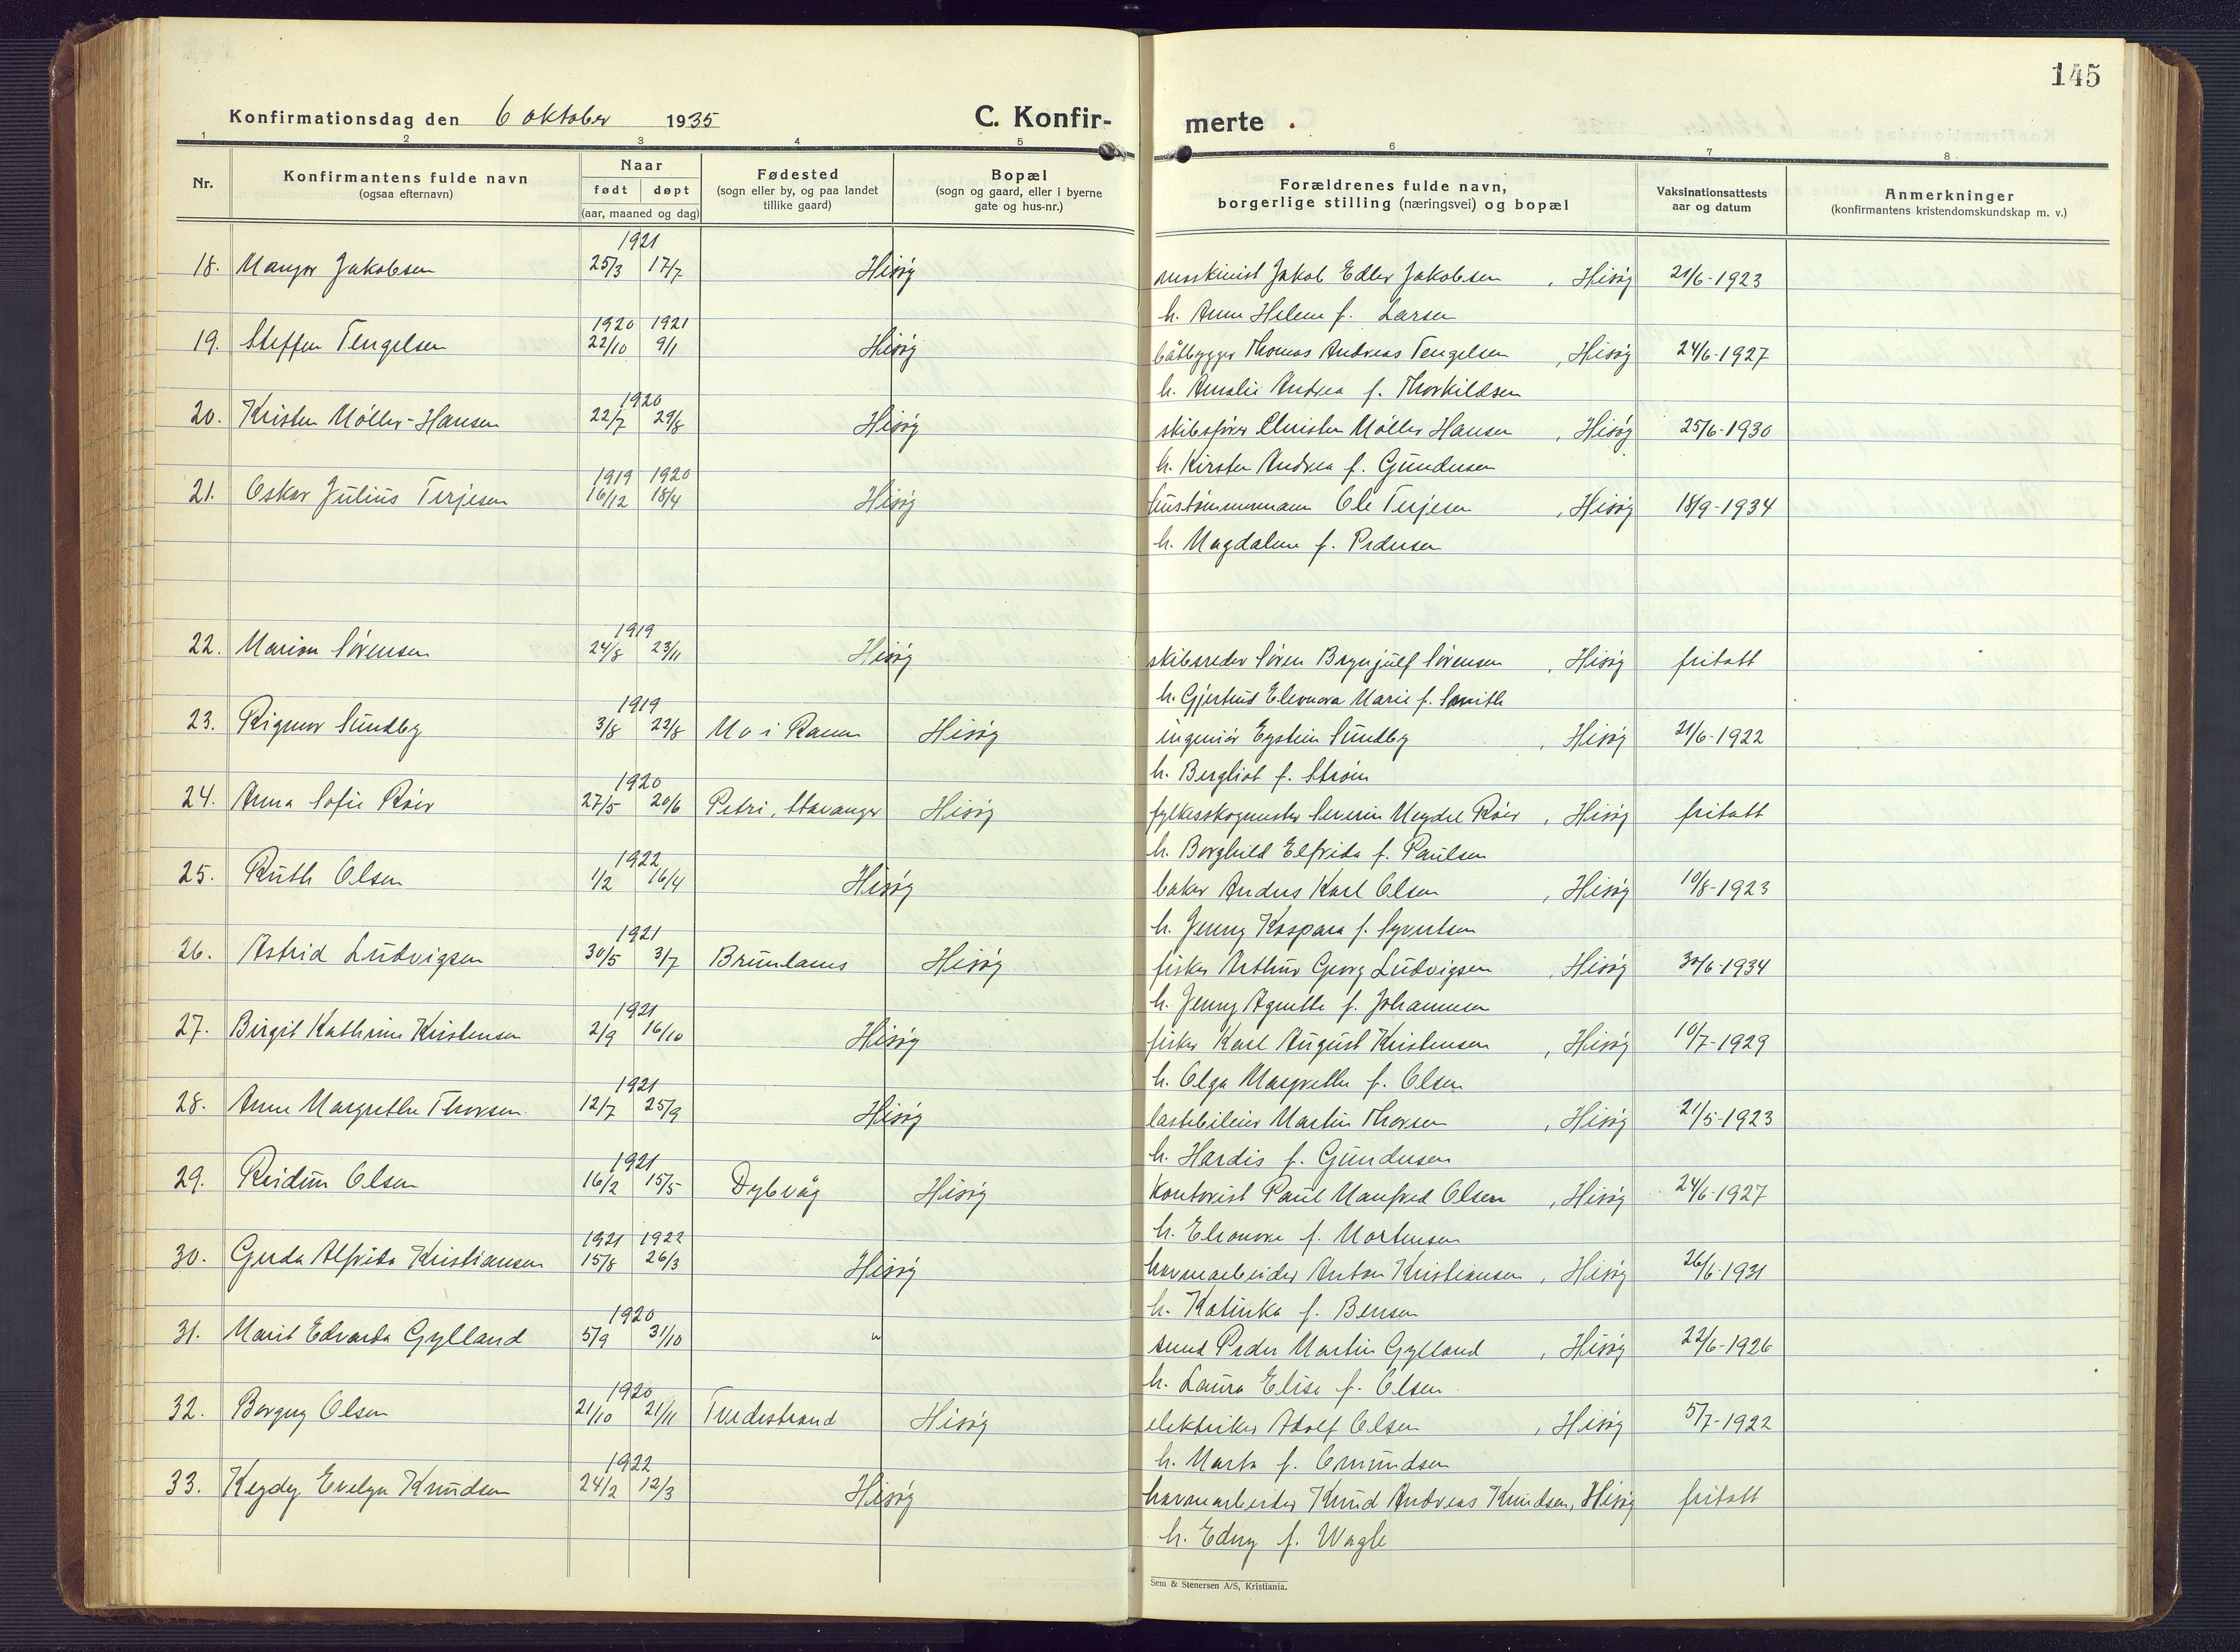 145
Konfirmationsdag den 6 oktober 1935 C. Konfir- merte
1 2 3 4 5 6 7 8
Nr. Konfirmantens fulde navn (ogsaa efternavn) Naar født døpt (aar, maaned og dag) Fødested (sogn eller by, og paa landet tillike gaard) Bopæl (sogn og gaard, eller i byerne gate og hus-nr.) Forældrenes fulde navn, borgerlige stilling (næringsvei) og bopæl Vaksinationsattests aar og datum Anmerkninger (konfirmantens kristendomskundskap m. v.)
1921
18. Jakobsen 25/3 17/7 Hisøy maskinist Jakob Edler Jakobsen, Hisøy 21/6-1923
h. Anne Helene f. Larsen
1920 1921
19. Steffen Tengelsen 22/10 9/1 Hisøy båtbygger Thomas Andreas Tengelsen, Hisøy 24/6-1927
h. Amalie Andrea f. Thorkildsen
1920
20. Kristen Møller-Hansen 22/7 29/8 Hisøy skibsfører Christen Møller Hansen, Hisøy 25/6-1930
h. Kirsten Andrea f. Gundersen
1919 1920
21. Oskar Julius Terjesen 16/12 18/4 Hisøy hustømmermann Ole Terjesen, Hisøy 18/9-1934
h. Magdalene f. Pedersen
1919
22. Marion Sørensen 24/8 23/11 Hisøy skibsreder Søren Brynjulf Sørensen, Hisøy fritatt
h. Gjertrud Eleonora Marie f. Smith
1919
23. Rigmor Sundby 3/8 22/8 Mo i Rana Hisøy ingeniør Eystein Sundby, Hisøy 21/6-1922
h. Bergliot f. Strøm
1920
24. Anna Sofie Røer 27/5 20/6 Petri, Stavanger Hisøy fylkesskogmester Severin Røer, Hisøy fritatt
h. Borghild Elfrida f. Paulsen
1922
25. Ruth Olsen 1/2 16/4 Hisøy baker Anders Karl Olsen, Hisøy 10/8-1923
h. Jenny Kaspara f. Syvertsen
1921
26. Astrid Ludvigsen 30/5 3/7 Brunlanes Hisøy fisker Arthur Georg Ludvigsen, Hisøy 30/6-1934
h. Jenny Agnethe f. Johannesen
1921
27. Birgit Kathrine Kristensen 2/9 16/10 Hisøy fisker Karl August Kristensen, Hisøy 10/7-1929
h. Olga Margrethe f. Olsen
1921
28. Anne Margrethe Thorsen 12/7 25/9 Hisøy lastebileier Martin Thorsen, Hisøy 21/5-1923
h. Hardis f. Gundersen
1921
29. Reidun Olsen 16/2 15/5 Dybvåg Hisøy kontorist Paul Manfred Olsen, Hisøy 24/6-1927
h. Eleonore f. Mortensen
1921 1922
30. Gerda Alfrida Kristiansen 15/8 26/3 Hisøy havnearbeider Anton Kristiansen, Hisøy 26/6-1931
h. Katinka f. Bensen
1920
31. Marit Edvarda Gylland 5/9 31/10 " Peder Martin Gylland, Hisøy 22/6-1926
h. Laura Elise f. Olsen
1920
32. Borgny Olsen 21/10 21/11 Tvedestrand Hisøy elektriker Adolf Olsen, Hisøy 5/7-1922
h. Marta f. Omundsen
1922
33. Keydy Evelyn Knudsen 24/2 12/3 Hisøy havnearbeider Knud Andreas Knudsen, Hisøy fritatt
h. Edny f. Wagle
Sem & Stenersen A/S, Kristiania.